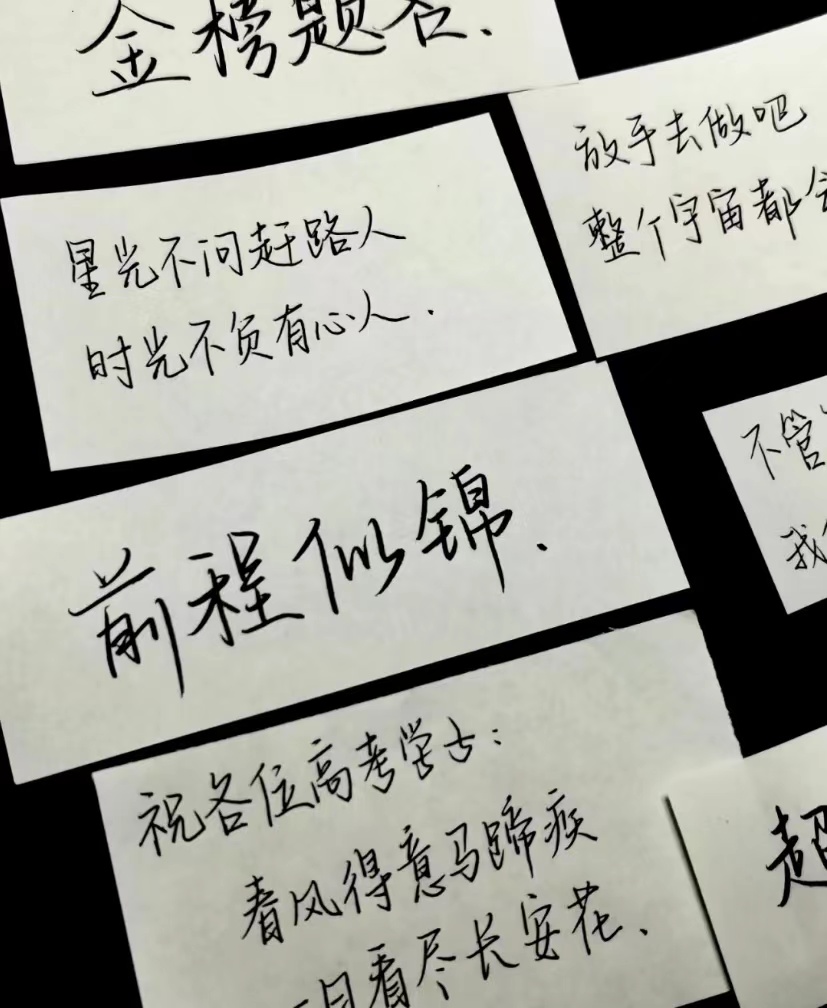 金榜题名.
放手去做吧
整个宇宙都会
星光不问赶路人
时光不负有心人.
不管
我
前程似锦.
祝各位高考学古:
春风得意马蹄疾
日看尽长安花、
超